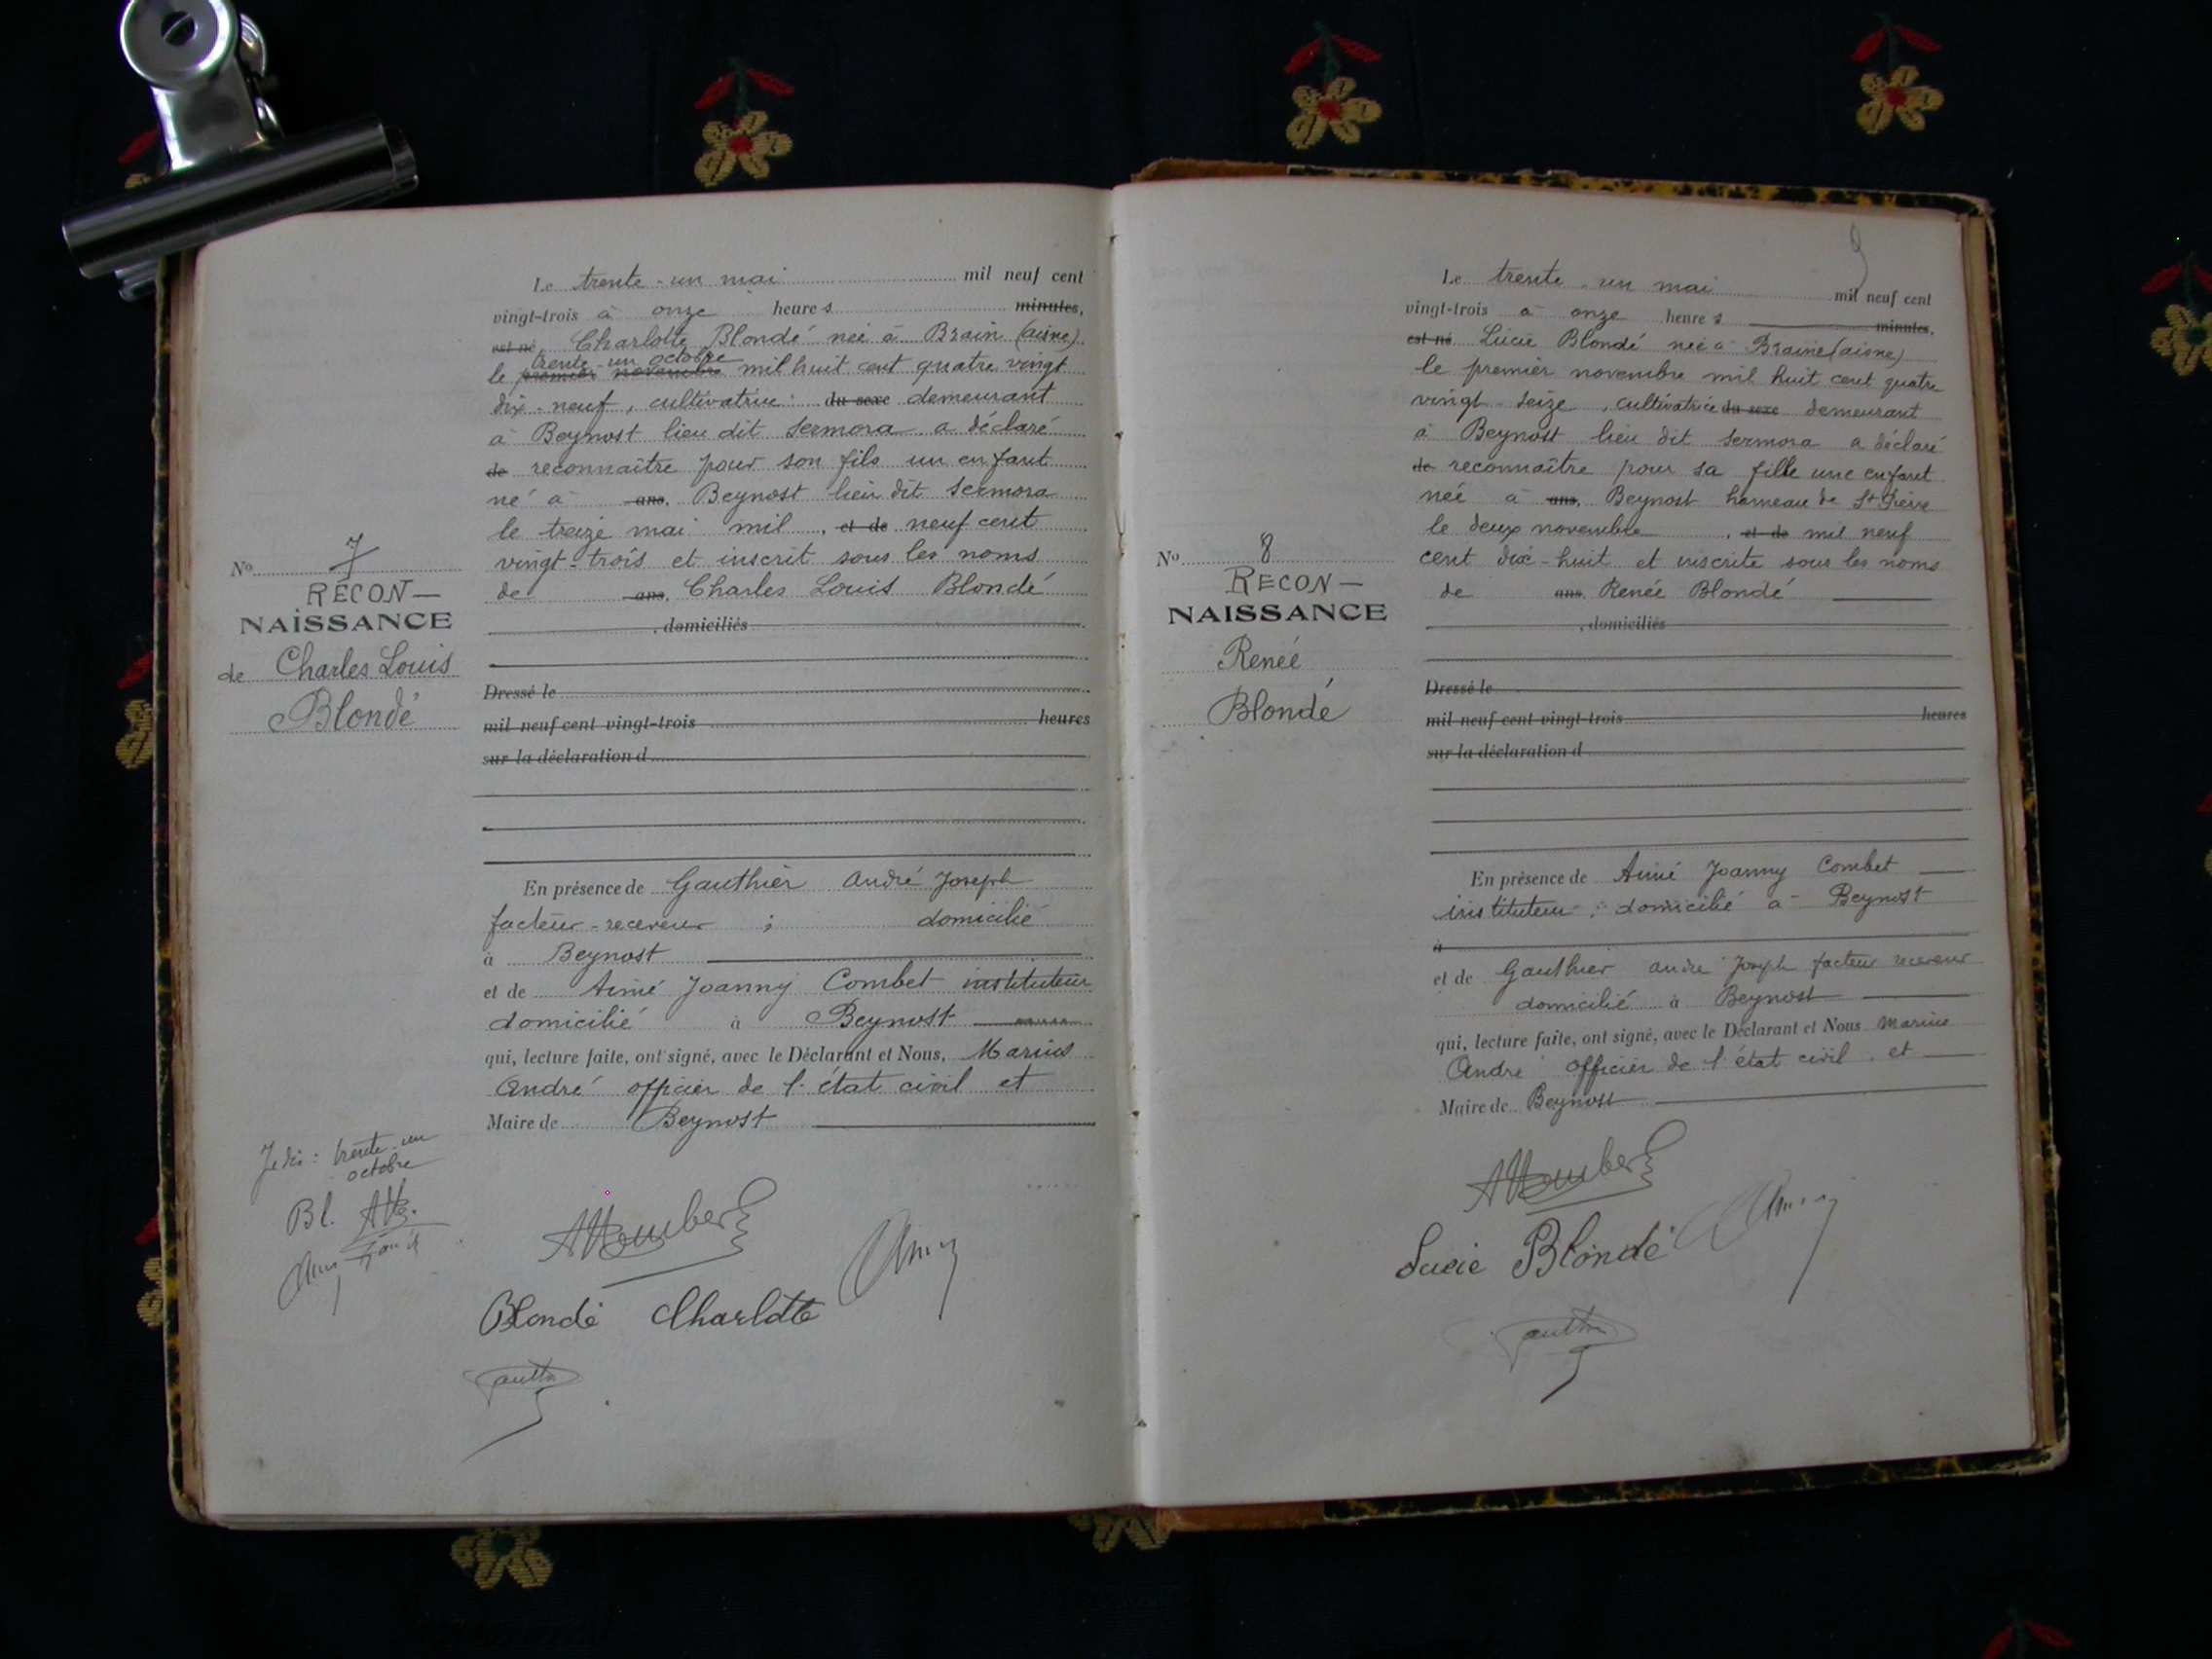 Le trente-un mai mil neuf cent
vingt-trois à onze heures minutes,
est né Charlotte Blondé née à Brain (aisne)
trente-un octobre
le premier novembre mil huit cent quatre vingt
dix-neuf, cultivatrice du sexe demeurant
à Beynost lieu dit Sermora a déclaré
de reconnaître pour son fils un enfant
né à ans, Beynost lieu dit Sermora
le treize mai mil, et de neuf cent
vingt-trois et inscrit sous les noms
de ans, Charles Louis Blondé
, domiciliés
Dressé le
mil neuf cent vingt-trois heures
sur la déclaration d
En présence de Gauthier André Joseph
facteur-receveur ; domicilié
à Beynost
et de Aimé Joanny Combet instituteur
domicilié à Beynost
qui, lecture faite, ont signé, avec le Déclarant et Nous, Marius
André officier de l'état civil et
Maire de Beynost
Blondé Charlotte
No 7
RECON-
NAISSANCE
de Charles Louis
Blondé
Je dis : trente-un
octobre
Bl.
9
Le trente-un mai mil neuf cent
vingt-trois à onze heures minutes,
est né Lucie Blondé née à Braine (aisne)
le premier novembre mil huit cent quatre
vingt seize, cultivatrice du sexe demeurant
à Beynost lieu dit Sermora a déclaré
de reconnaître pour sa fille une enfant
née à ans, Beynost hameau de St
le deux novembre, et de mil neuf
cent dix-huit et inscrite sous les noms
de ans, Renée Blondé
, domiciliés
Dressé le
mil neuf cent vingt-trois heures
sur la déclaration d
En présence de Aimé Joanny Combet
instituteur ; domicilié à Beynost
à
et de Gauthier André Joseph facteur receveur
domicilié à Beynost
qui, lecture faite, ont signé, avec le Déclarant et Nous Marius
André officier de l'état civil, et
Maire de Beynost
Lucie Blondé
No 8
RECON-
NAISSANCE
Renée
Blondé